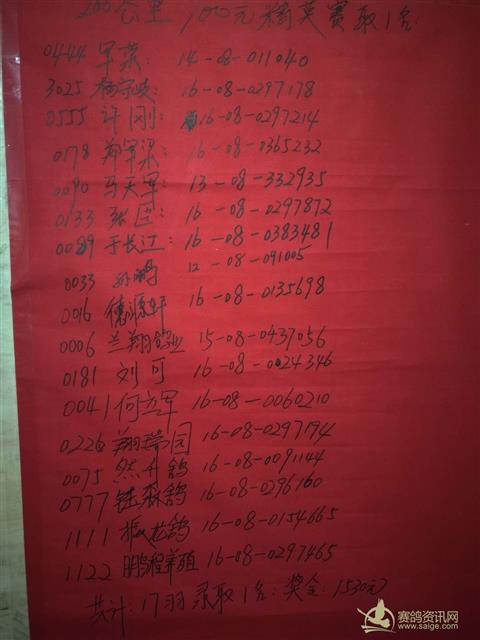 200公里, 100元精英赛取1名:
0444 军荣: 14-08-011040
3025 杨宁波: 16-08-0297178
0555 许刚: 16-08-0297214
0178 郑军梁: 16-08-0365232
0090 马天军: 13-08-332935
0133 张臣: 16-08-0297872
0089 于长江: 16-08-0383481
0033 孙鸣 12-08-091005
0016 德源轩 16-08-0135698
0006 兰翔鸽业 15-08-0437056
0181 刘可 16-08-0024346
0041 何立军 16-08-0060210
0226 翔瑞园 16-08-0297194
0075 然升鸽 16-08-0091144
0777 森鸽 16-08-0296160
1111 振龙鸽 16-08-0154665
1122 鹏程养殖 16-08-0297465
共计: 17羽 录取1名: 奖金: 1530元
赛鸽资讯网
www.saige.com